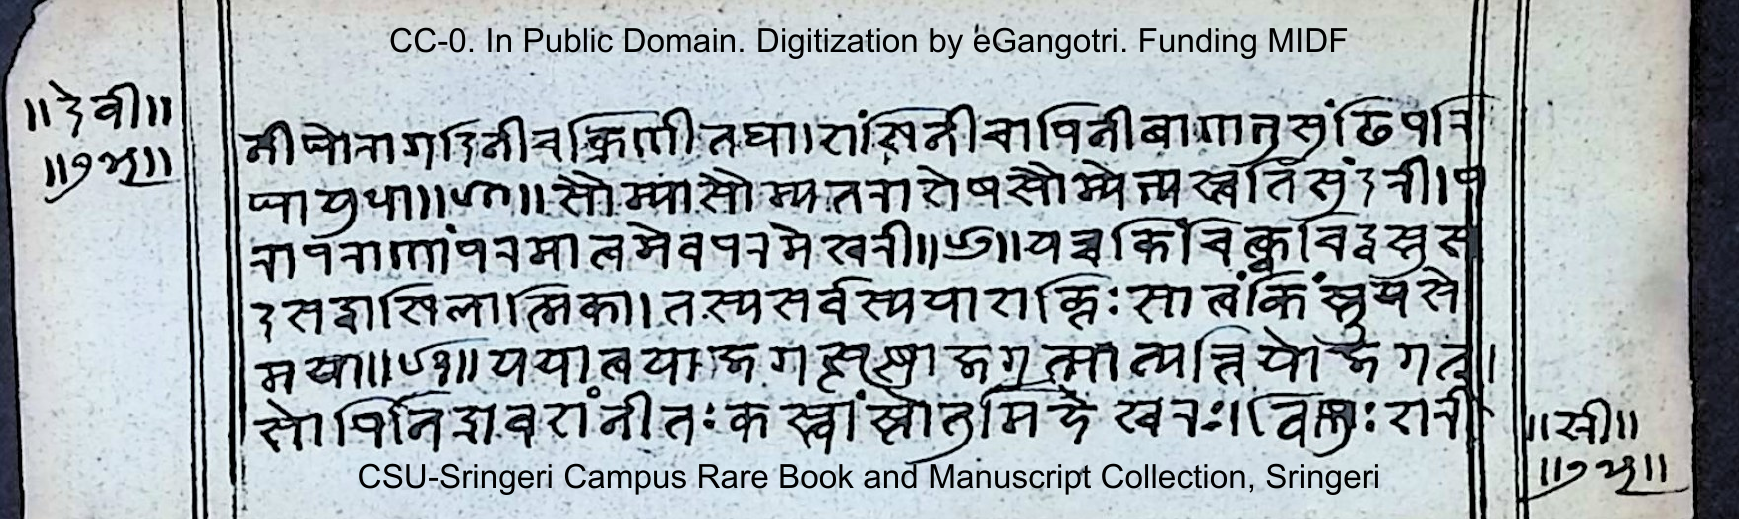 CC-0. In Public Domain. Digitization by eGangotri. Funding MIDF
॥देवी॥
॥७५॥
नी घोरा गदिनी चक्रिणी तथा। शंखिनी चापिनी बाणभुसुंढिपरि
घायुधा॥८०॥ सौम्या सौम्यतराशेषसौम्येभ्यस्त्वतिसुंदरी। प
रापराणां परमा त्वमेव परमेश्वरी॥८१॥ यच्च किंचित्क्वचिद्वस्तु स
दसद्वाखिलात्मिका। तस्य सर्वस्य या शक्तिः सा त्वं किं स्तूयसे
मया॥८२॥ यया त्वया जगत्स्रष्टा जगत्पात्यत्ति यो जगत्।
सोपि निद्रावशं नीतः कस्त्वां स्तोतुमिहेश्वरः। विष्णुः शरी
॥स्ती॥
॥७५॥
CSU-Sringeri Campus Rare Book and Manuscript Collection, Sringeri